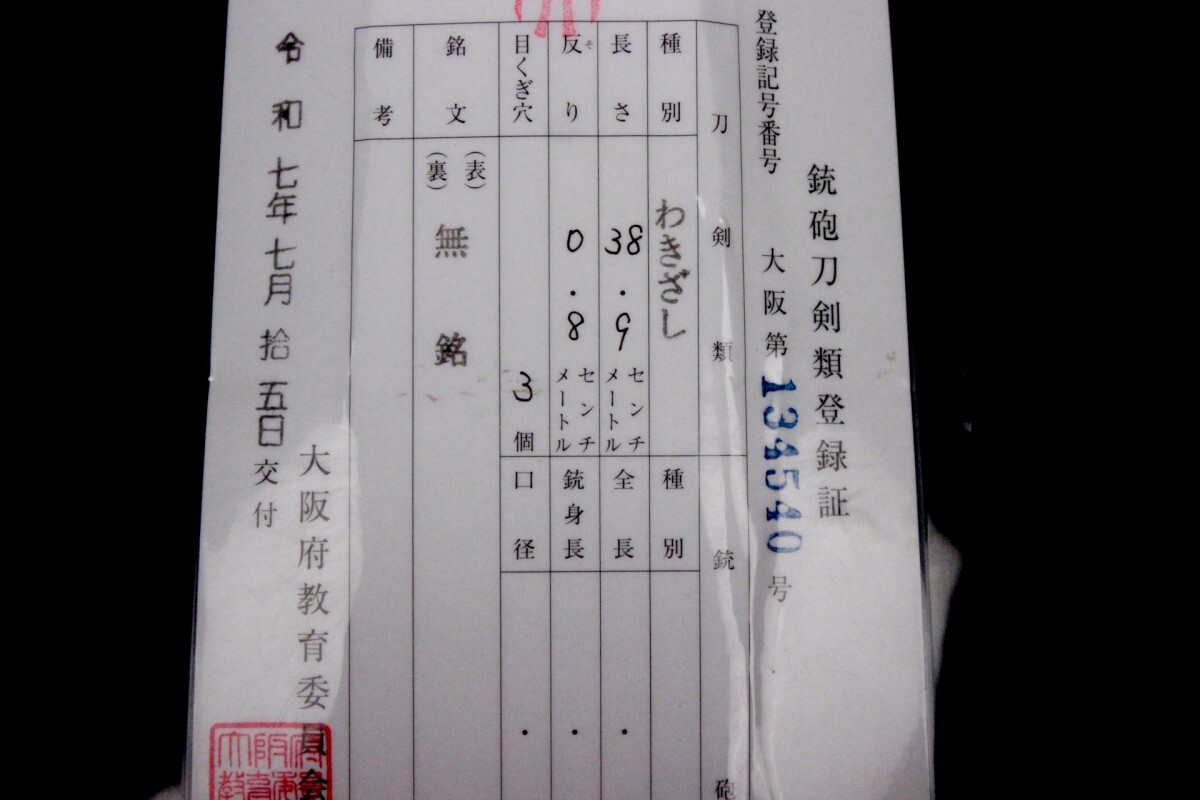 銃砲刀剣類登録証
登録記号番号 大阪第134540号
刀剣類
種別 わきざし
長さ 38.9 センチメートル
反り 0.8 センチメートル
そ
目くぎ穴 3個
銘文 (表) (裏) 無銘
備考
銃砲
種別
全長 ・
銃身長 ・
口径 ・
令和七年七月拾五日交付
大阪府教育委員会